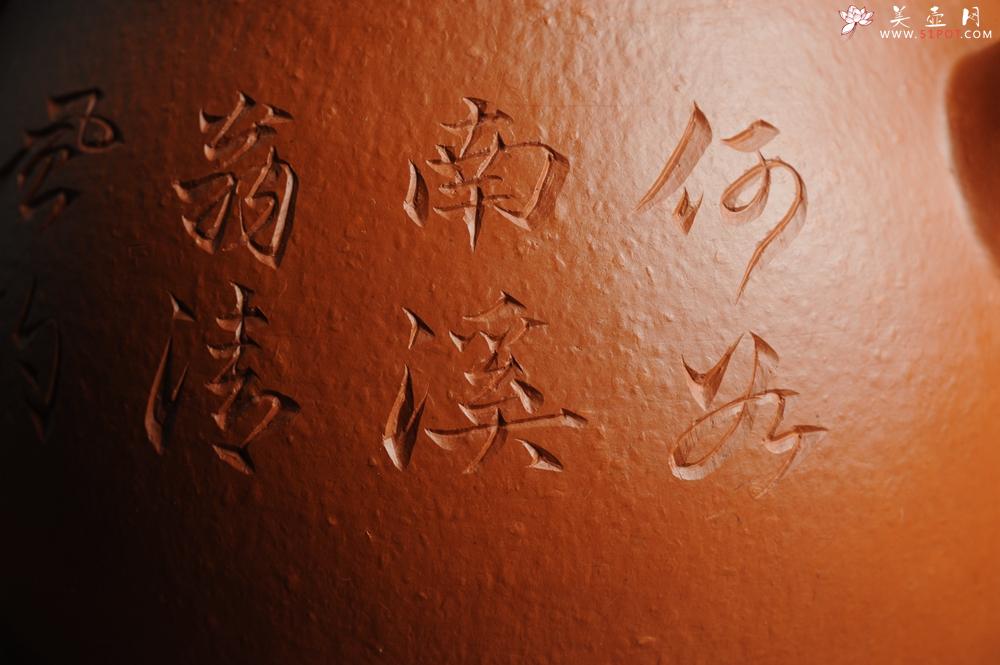 美壶网
WWW.51POT.COM
何如
南溪
翁清